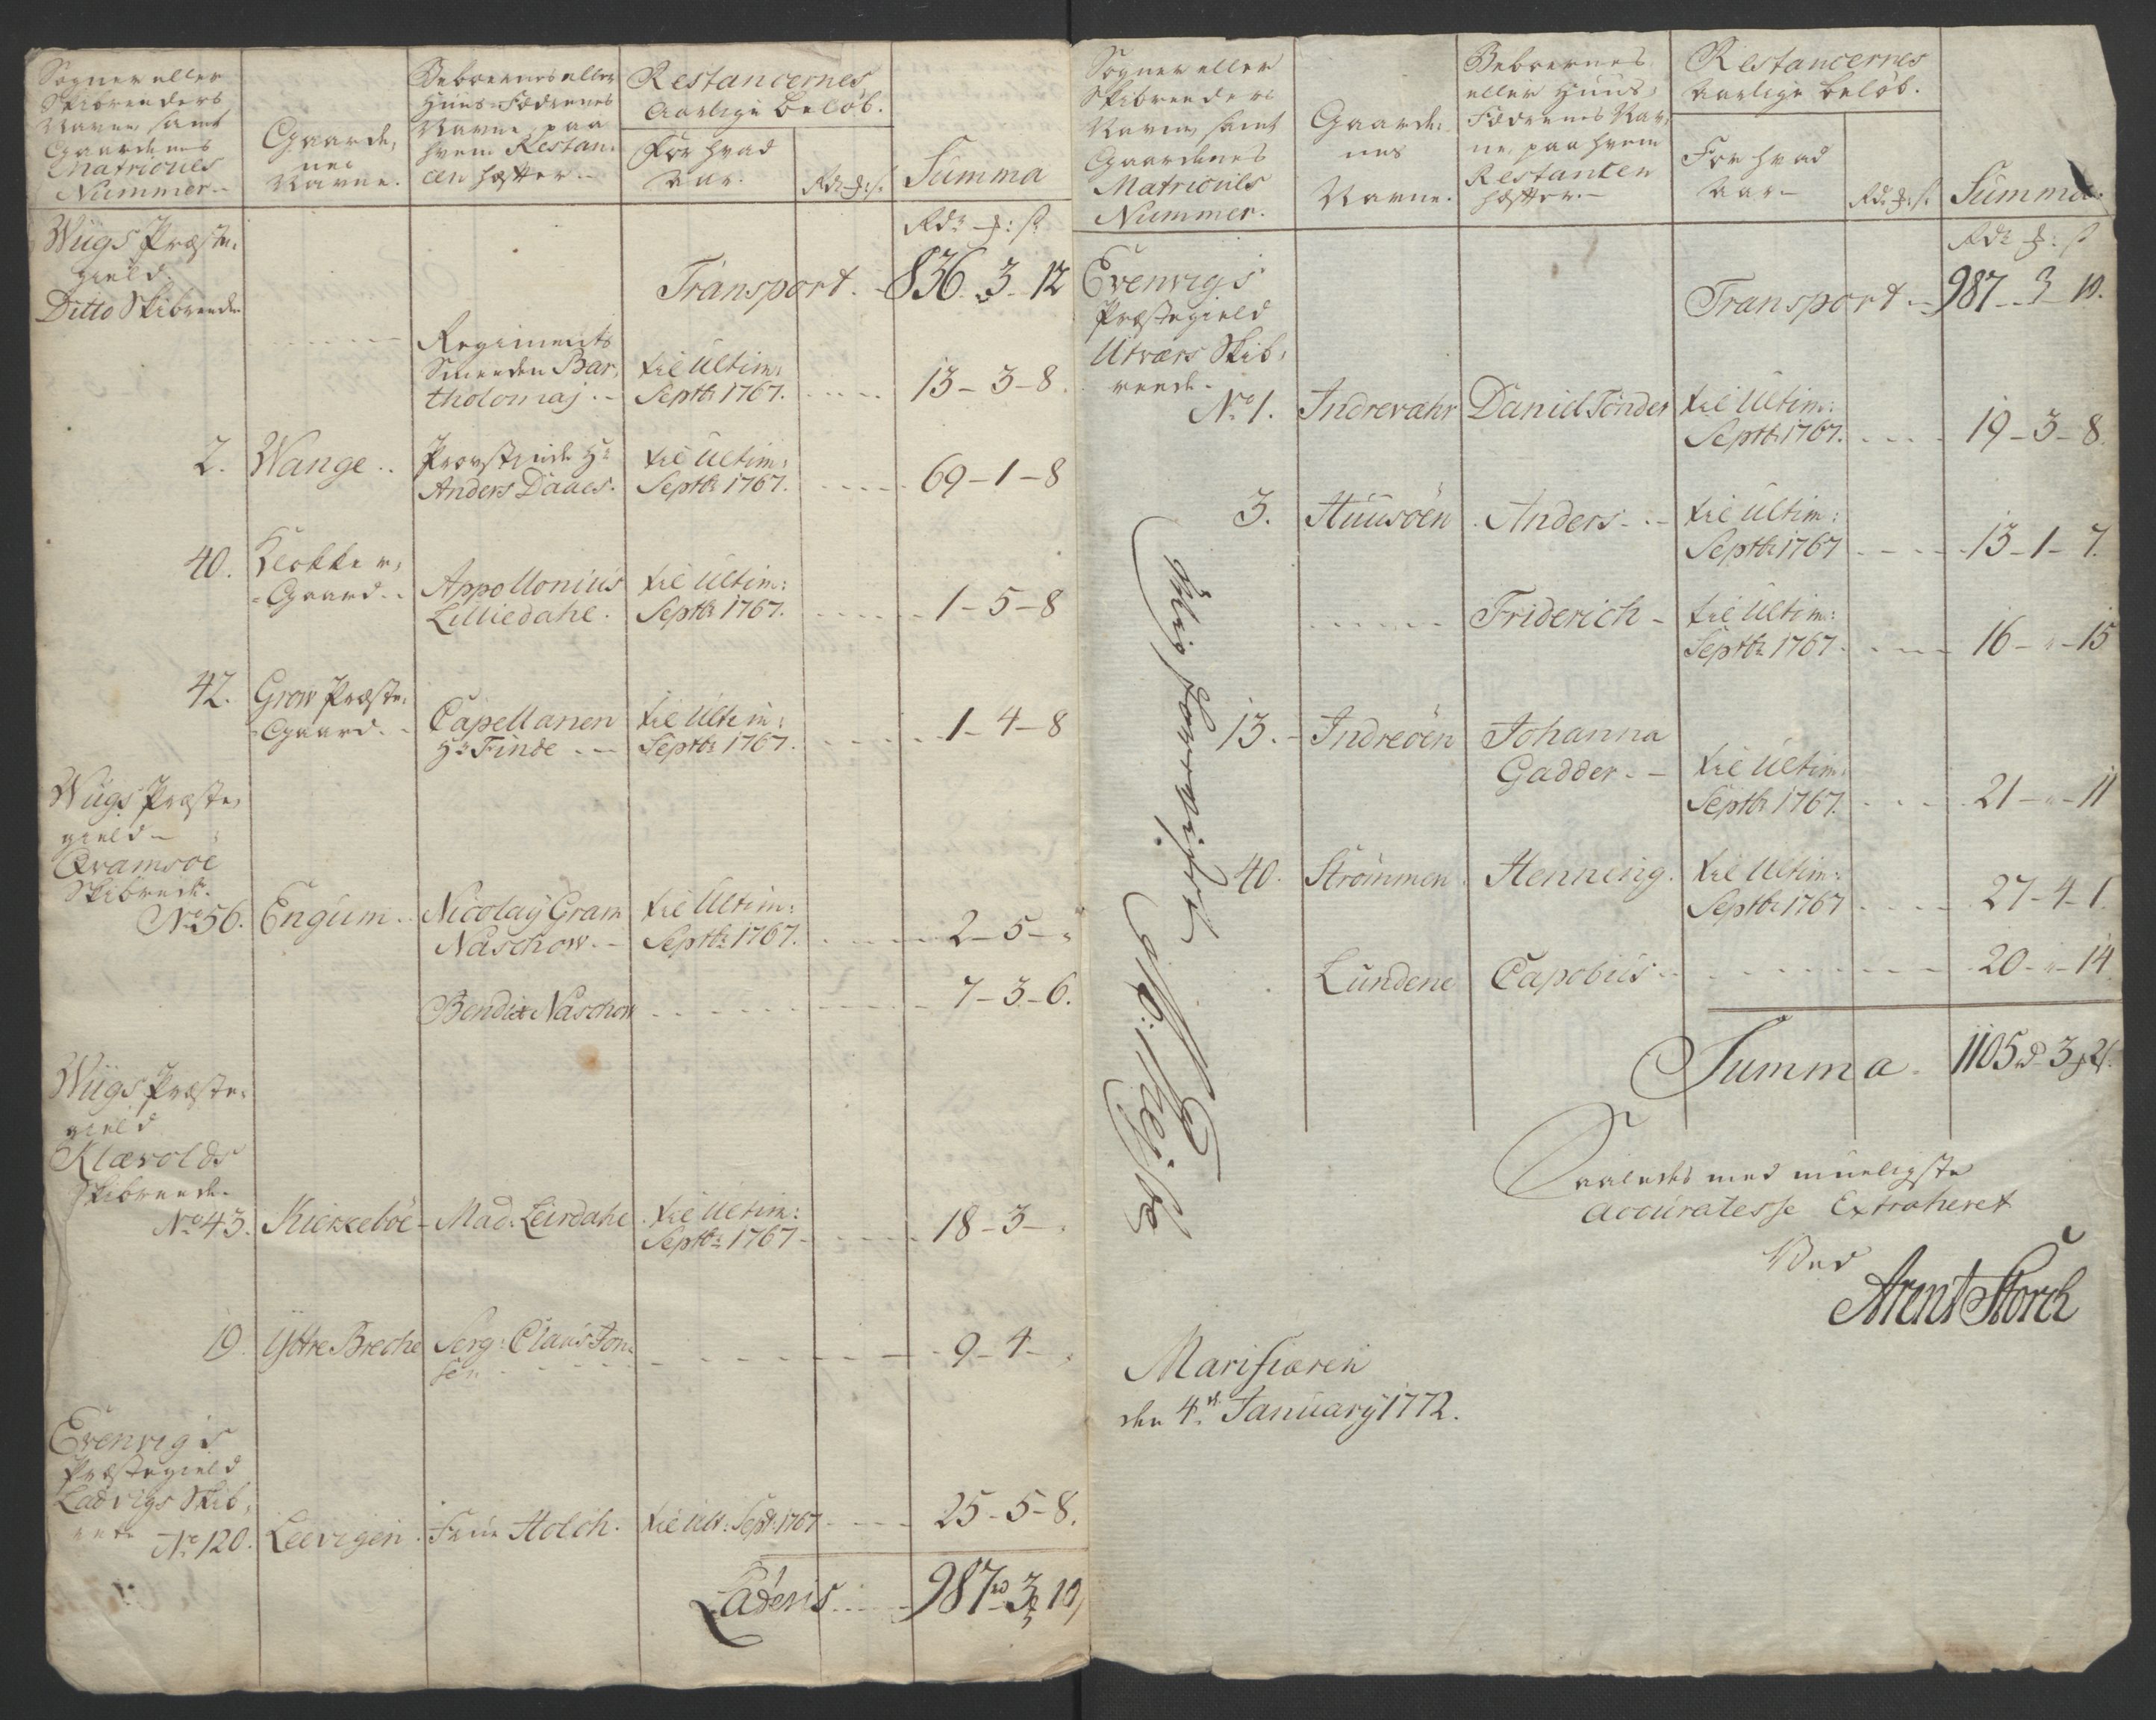 Sogner eller
Skibreeders
Navne, samt
Gaardenes
Matriculs
Nummer.-
Gaarde,
nes
Navne.
Beboernes eller
Huus-Fædrenes
Navne, paa
hvem Restan-
cen hæfter.-
Restancernes
Aarlige Beløb.
For hvad
Aar.
Rdr. ꝫ: s.
Summa
Rdr ꝫ: s
Wiigs Præste,
gield.
Ditto Skibreede
Transport. - 836. 3. 12
Regiments
Smeeden Bar, til Ultim:
tholomæj .- Septbr 1767. .... 13-3-8.
2. Wange .. Provstinde Hr til Ultim:
Anders Daaes. Septbr 1767. .... 69-1-8
40. Klokker,
-Gaard. . Appollonius til Ultim:
Lilliedahl. Septbr 1767. .... 1-5-8
42. Grow Præste,
-Gaard. - Capellanen til Ultim:
Hr Finde .-- Septbr 1767. .... 1-4-8
Wiigs Præste,
gield-
Qvamsöe
Skibrede.
No 56. Engum .. Nicolaÿ Gram til Ultim:
Naschow.- Septbr 1767. .... 2-5-"
Bendix Naschow .... 7-3-6.
Wiigs Præste,
gield
Klævolds
Skibreede.
No 43. Kiezzeböe- Mad: Leirdahl til Ultim:
Septbr 1767- .... 18-3-.
19. Yttre Breche Serg: Claus Jon-
sen .... 9-4-.
Evenvigs
Præstegield
Ladvigs Skib,
rede No 120. Leevigen. Frue Holch. til Ult: Sept: 1767 .... 25-5-8.
Lateris .... 987 rd 3 ꝫ 10,
Sogner eller
Skibreeders
Navne, samt
Gaardenes
Matriculs
Nummer.
Gaarde:
nes
Navne.
Beboernes
eller Huus,
Fædrenes Nav,
ne, paa hvem
Restancen
hæfter.-
Restancernes
Aarlige Beløb.
For hvad
Aar-
Rdr. ꝫ: s.
Summa.
Rdr ꝫ: s
Evenvigs
Præstegield
Utværs Skib,
reede.
Transport .- 987-3-10.
No 1. Indrevæhr Daniel Tönder til Ultim:
Septbr 1767. .... 19-3-8.
3. Huusöen . Anders- .- til Ultim:
Septbr 1767 .... 13-1-7.
...... Friderich - til Ultim:
Septbr 1767. .... 16-"-15
13.- Indreöen Johanna
Gadder.- - til Ultim:
Septbr 1767. .... 21-"-11
40. Strömmen. Henning. til Ultim:
Septbr 1767 .... 27-4-1.
Lundene Capobüs.- .... 20-"-14.
Summa. 1105 rd 3 ꝫ 2 s.
Saaledes med mueligste
Accuratesse Extraheret
Ved
Arent Storch
Marifiæren
den 4de Januarÿ 1772.